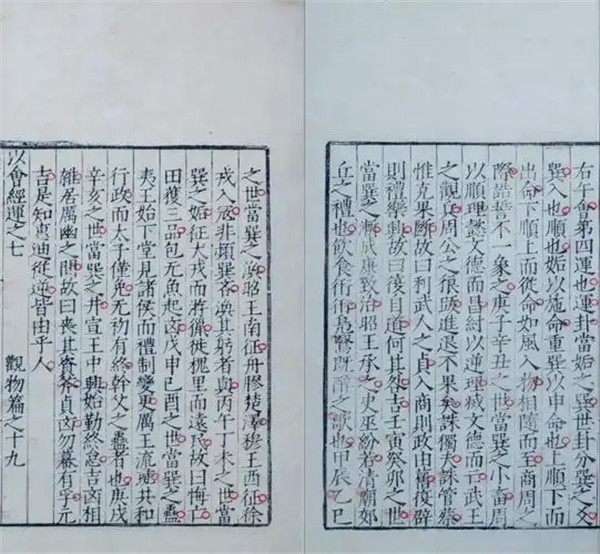 右午會第四運也運卦當姤之巽世卦分巽之爻
巽入也順也姤以施命重巽以申命也上順下而
出命下順上而從命如風入物相隨而至商周之
際誥誓不一象之庚子辛丑之世當巽之小畜周
以順理懿文德而昌紂以逆理烕文德而亡武王
之觀兵周公之狼跋進退不果矣誅獨夫誅管蔡
惟克果斷故曰利武人之貞入商則政由舊復辟
則禮樂興故曰復自道何其咎吉壬寅癸卯之世
當巽之漸成康致治昭王承之史巫紛若清朝郊
丘之禮也飲食衎衎既醉之歌也甲辰乙巳
之世當巽之渙昭王南征舟膠楚澤穆王西征徐
戎入寇非頻巽吝渙其躬者與丙午丁未之世當
巽之姤征犬戎而徙槐里而遠故曰悔亡
田獲三品包无魚起凶戊申己酉之世當巽之蠱
夷王始下堂見諸侯而禮制變更厲王流彘共和
行政而太子僅免无初有終幹父之蠱者也庚戌
辛亥之世當巽之井宣王中興始勤終怠吉凶相
雜居厲幽之間故曰喪其資斧貞凶勿幕有孚元
吉是知惠迪從逆皆由乎人
以會經運之七 觀物篇之十九